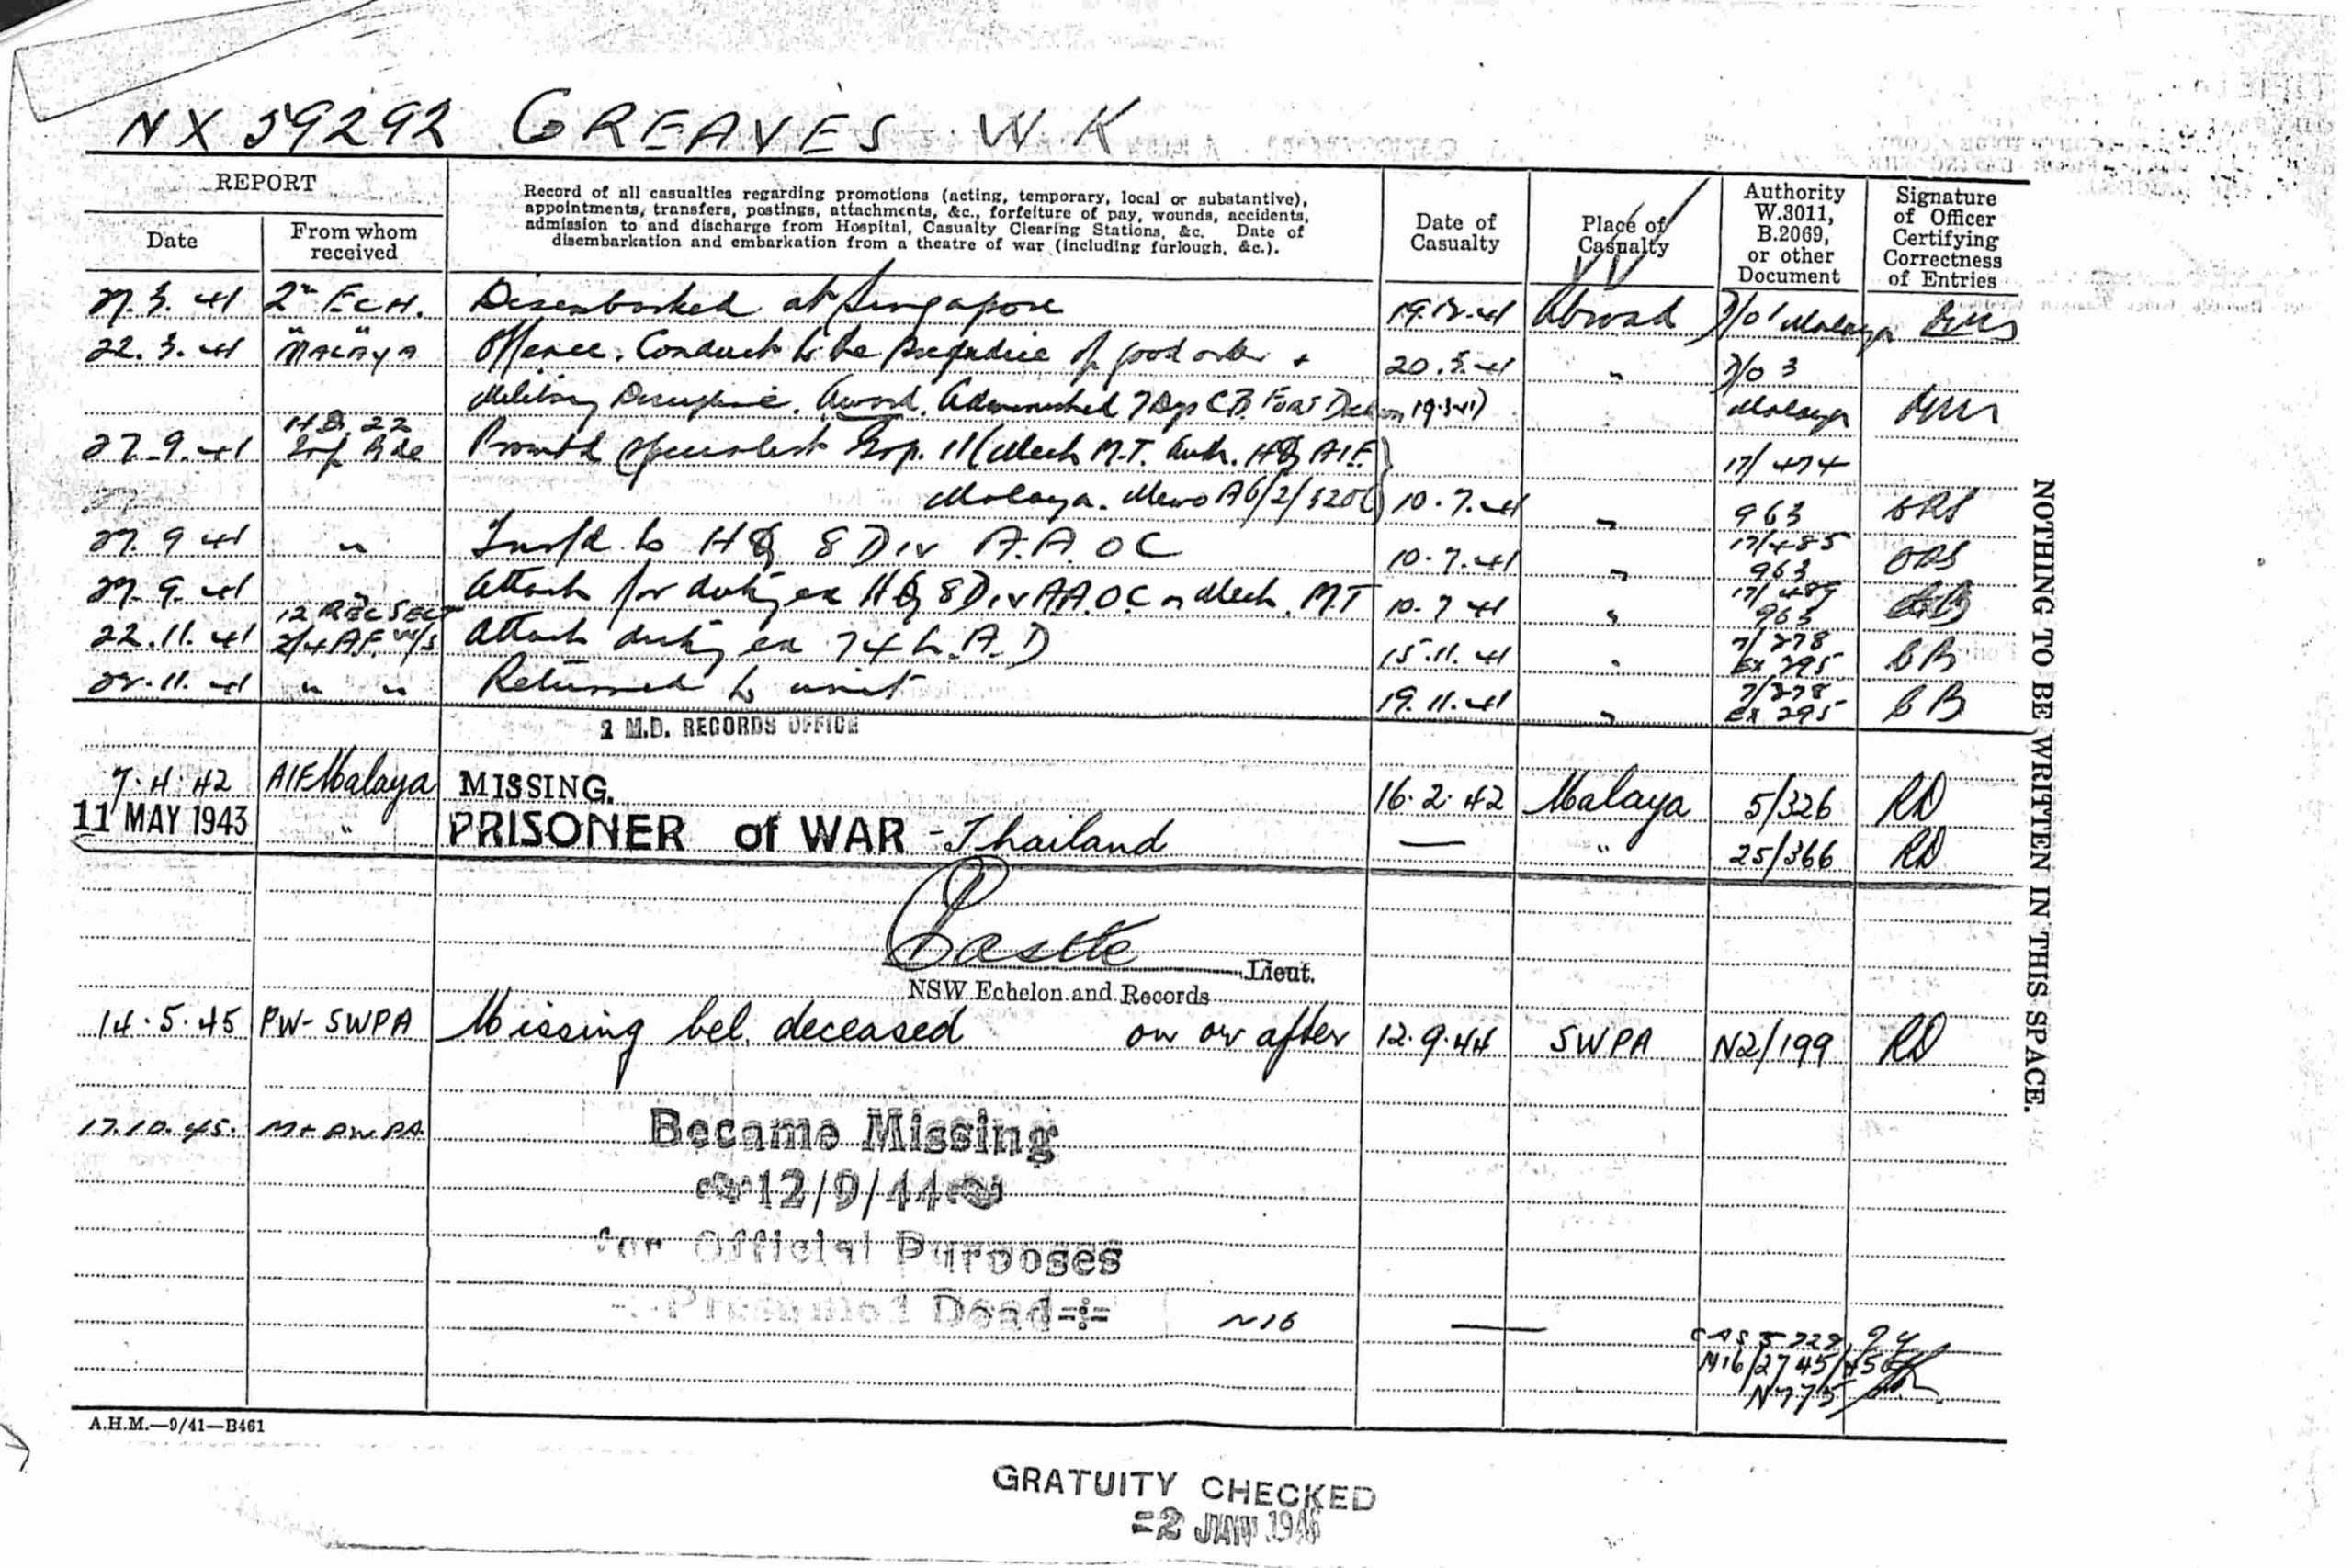 NX 59292 GREAVES W K
REPORT
Date
From whom received
Record of all casualties regarding promotions (acting, temporary, local or substantive),
appointments, transfers, postings, attachments, &c., forfeiture of pay, wounds, accidents,
admission to and discharge from Hospital, Casualty Clearing Stations, &c. Date of
disembarkation and embarkation from a theatre of war (including furlough, &c.).
Date of Casualty
Place of Casualty
Authority W.3011, B.2069, or other Document
Signature of Officer Certifying Correctness of Entries
2" Ech. Disembarked at Singapore Abroad Malaya
22.3.41 Malaya Offence. Conduct to the prejudice of good order + 20.3.41 " 7/0 3
Military Discipline. Award. Admonished 7 Dys CB Malaya
27.9.41 HQ 22 Inf Bde Specialist Grp. II (Mech M.T. Auth. HQ AIF 17/474
Malaya. Memo A6/2/ 10.7.41 " 963
27.9.41 " Tnsfd to HQ 8 Div A.A.O.C 10.7.41 " 17/485 963
27.9.41 Attach for duty ex HQ 8 Div A.A.O.C. Mech. M.T 10.7.41 " 17/489 963
22.11.41 12 REC SECT 2/4 A.F. W/S Attach duty ex 74 L.A.D 15.11.41 " 7/278 Ex 295 BB
22.11.41 " " Returned to unit 19.11.41 " 7/278 Ex 295 BB
2 M.D. RECORDS OFFICE
7.4.42 AIF Malaya MISSING. 16.2.42 Malaya 5/326 RD
11 MAY 1943 " PRISONER of WAR - Thailand — " 25/366 RD
Lieut.
NSW Echelon and Records
14.5.45 PW-SWPA Missing bel. deceased on or after 12.9.44 SWPA N2/199 RD
17.10.45. Became Missing
12/9/44
for Official Purposes
Presumed Dead
N16 —
M16/2745/45
N775
A.H.M.—9/41—B461
NOTHING TO BE WRITTEN IN THIS SPACE.
GRATUITY CHECKED
-2 JAN 1946